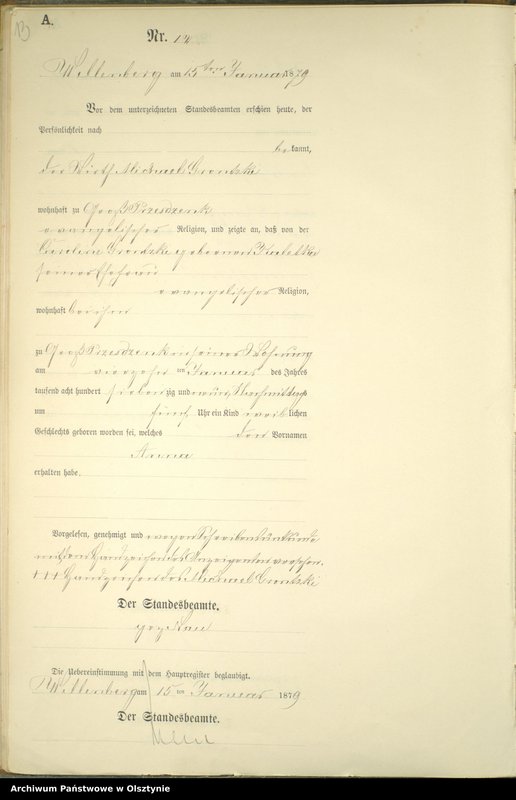 13
A.
Nr. 12
Willenberg am 15ten Januar 1879
Vor dem unterzeichneten Standesbeamten erschien heute, der
Persönlichkeit nach
be kannt,
der Wirth Michael
wohnhaft zu Groß Przesdzenk
evangelischer Religion, und zeigte an, daß von der
geborenen
seiner Ehefrau
evangelischer Religion,
wohnhaft bei ihm
zu Groß Przesdzenk in seiner Wohnung
am vierzehn ten Januar des Jahres
tausend acht hundert sieben zig und neun Nachmittags
um fünf Uhr ein Kind weib lichen
Geschlechts geboren worden sei, welches den Vornamen
Anna
erhalten habe.
Vorgelesen, genehmigt und wegen Schreibensunkunde
mit dem Handzeichen des Anzeigenden versehen.
+++ Handzeichen des Michael
Der Standesbeamte.
gez.
Die Uebereinstimmung mit dem Hauptregister beglaubigt.
Willenberg am 15 ten Januar 1879
Der Standesbeamte.
Archiwum Państwowe w Olsztynie